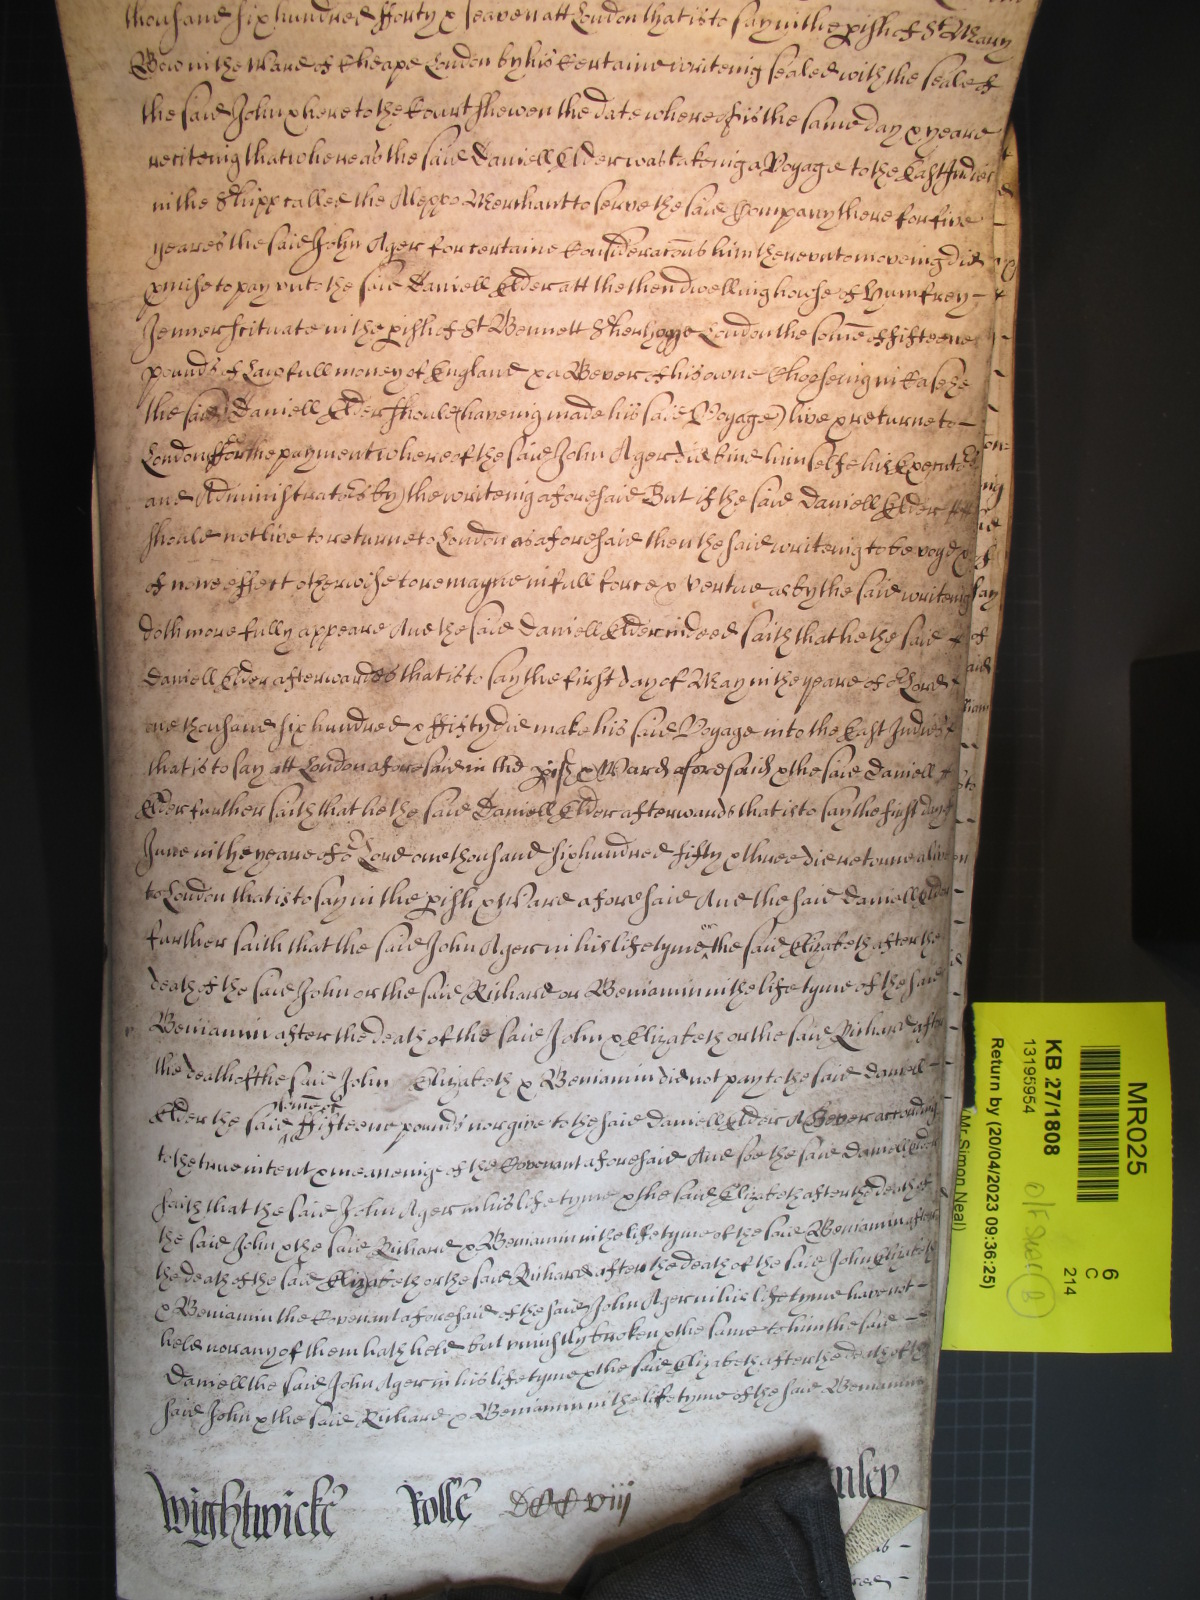 thousand six hundred fforty & seaven att London that is to say in the pish of St Mary
Bow in the Ward of Cheape London by his certaine writeing sealed with the seale of
the said John & here to the Court shewen the date whereof is the same day & yeare
reciteing that whereas the said Daniell Elder was takeing a Voyage to the East Indies
in the Shipp called the Aleppo Merchant to serve the said Company there for five
yeares the said John Ager for certaine consideracons him thereunto moveing did
pmise to pay unto the said Daniell Elder att the then dwelling house of Humfrey
Jenner scituate in the pish of St Bennett Sherhogge London the some of fifteene
pounds of Lawfull money of England & a Bever of his owne chooseing in case he
the said Daniell Elder should (haveing made his said Voyage) live & returne to
London ffor the payment whereof the said John Ager did bind himselfe his Executors
and Administrators by the writeing aforesaid But if the said Daniell Elder
should not live to returne to London as aforesaid then the said writeing to be voyd &
of none effect otherwise to remayne in full force & vertue as by the said writeing
doth more fully appeare And the said Daniell Elder in deed saith that he the said
Daniell Elder afterwardes that is to say the first day of May in the yeare of or Lord
one thousand six hundred & ffifty did make his said Voyage into the East Indies
that is to say att London aforesaid in the pish & Ward aforesaid & the said Daniell
Elder further saith that he the said Daniell Elder afterwards that is to say the first day of
June in the yeare of or Lord one thousand six hundred fifty & three did returne alive
to London that is to say in the pish & Ward aforesaid And the said Daniell Elder
further saith that the said John Ager in his life tyme or the said Elizabeth after the
death of the said John or the said Richard or Beniamin in the life tyme of the said
Beniamin after the death of the said John & Elizabeth or the said Richard after
the death of the said John Elizabeth & Beniamin did not pay to the said Daniell
Elder the said somme of ffifteene pounds nor give to the said Daniell Elder A Bever according
to the true intent & meaneinge of the Covenant aforesaid And soe the said Daniell Elder
saith that the said John Ager in his life tyme & the said Elizabeth after the death of
the said John & the said Richard & Beniamin in the life tyme of the said Beniamin after
the death of the said Elizabeth or the said Richard after the death of the said John Elizabeth
& Beniamin the Covenant aforesaid of the said John Ager in his life tyme have not
held nor any of them hath held but unjustly broken & the same to him the said
Daniell the said John Ager in his life tyme & the said Elizabeth after the death of the
said John & the said Richard & Beniamin in the life tyme of the said Beniamin
Wightwicke Rolle DCCviij
MR025
6
C
214
KB 27/1808
13195954
Return by (20/04/2023 09:36:25)
(Mr Simon Neal)